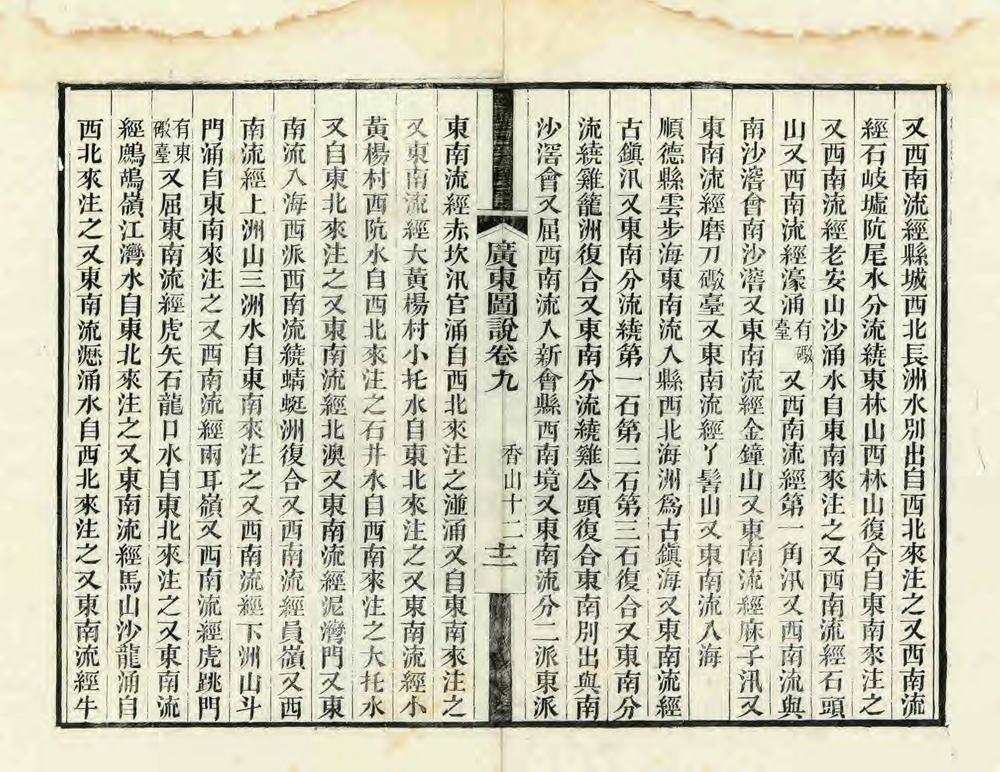 又西南流經縣城西北長洲水別出自西北來注之又西南流
經石岐墟阮尾水分流繞東林山西林山復合自東南來注之
又西南流經老安山沙涌水自東南來注之又西南流經石頭
山又西南流經濠涌有礮臺又西南流經第一角汛又西南流與
南沙滘會南沙滘又東南流經金鐘山又東南流經麻子汛又
東南流經磨刀礮臺又東南流經丫髻山又東南流入海
順德縣雲步海東南流入縣西北海洲爲古鎭海又東南流經
古鎭汛又東南分流繞第一石第二石第三石復合又東南分
流繞雞籠洲復合又東南分流繞雞公頭復合東南別出與南
沙滘會又屈西南流入新會縣西南境又東南流分二派東派
廣東圖說卷九
香山十二
十二
東南流經赤坎汛官涌自西北來注之湴涌又自東南來注之
又東南流經大黃楊村小托水自東北來注之又東南流經小
黃楊村西阬水自西北來注之石井水自西南來注之大托水
又自東北來注之又東南流經北澳又東南流經泥灣門又東
南流入海西派西南流繞蜻蜓洲復合又西南流經員嶺又西
南流經上洲山三洲水自東南來注之又西南流經下洲山斗
門涌自東南來注之又西南流經兩耳嶺又西南流經虎跳門
有東礮臺又屈東南流經虎矢石龍口水自東北來注之又東南流
經鷓鴣嶺江灣水自東北來注之又東南流經馬山沙龍涌自
西北來注之又東南流瀝涌水自西北來注之又東南流經牛